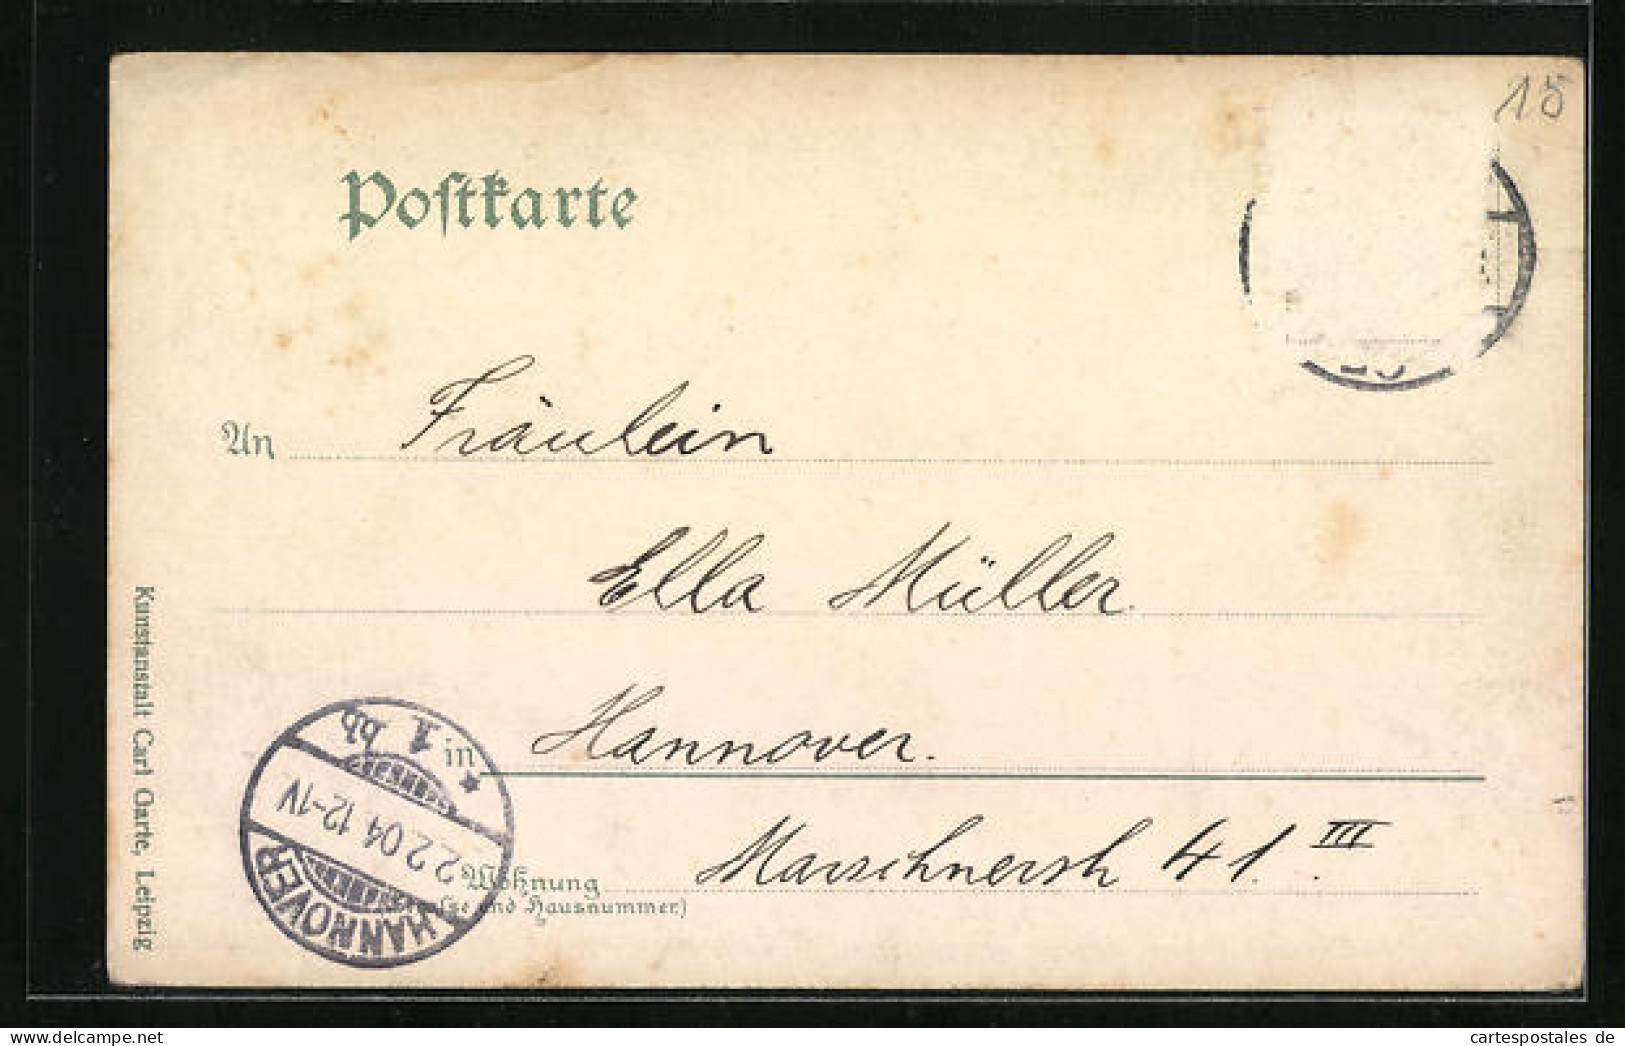 15
Postkarte
An Fräulein
Ella Müller.
in Hannover.
Wohnung Marschnerstr 41. III
(Strasse und Hausnummer)
HANNOVER
2.2.04.12-1V
* 1 bb
Kunstanstalt Carl Garte, Leipzig
www.delcampe.net
cartespostales de